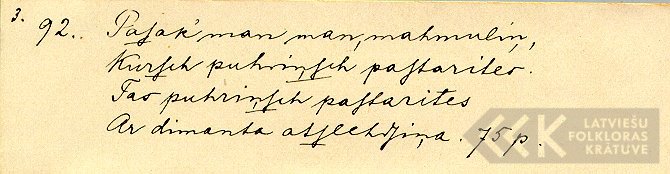 3.
92.. Pasak' man man, mahmuliņ,
Kursch puhriņsch pastarites.
Tas puhriņsch pastarites
Ar dimanta atslehdsiņa. 75 p.
LATVIEŠU
FOLKLORAS
KRĀTUVE